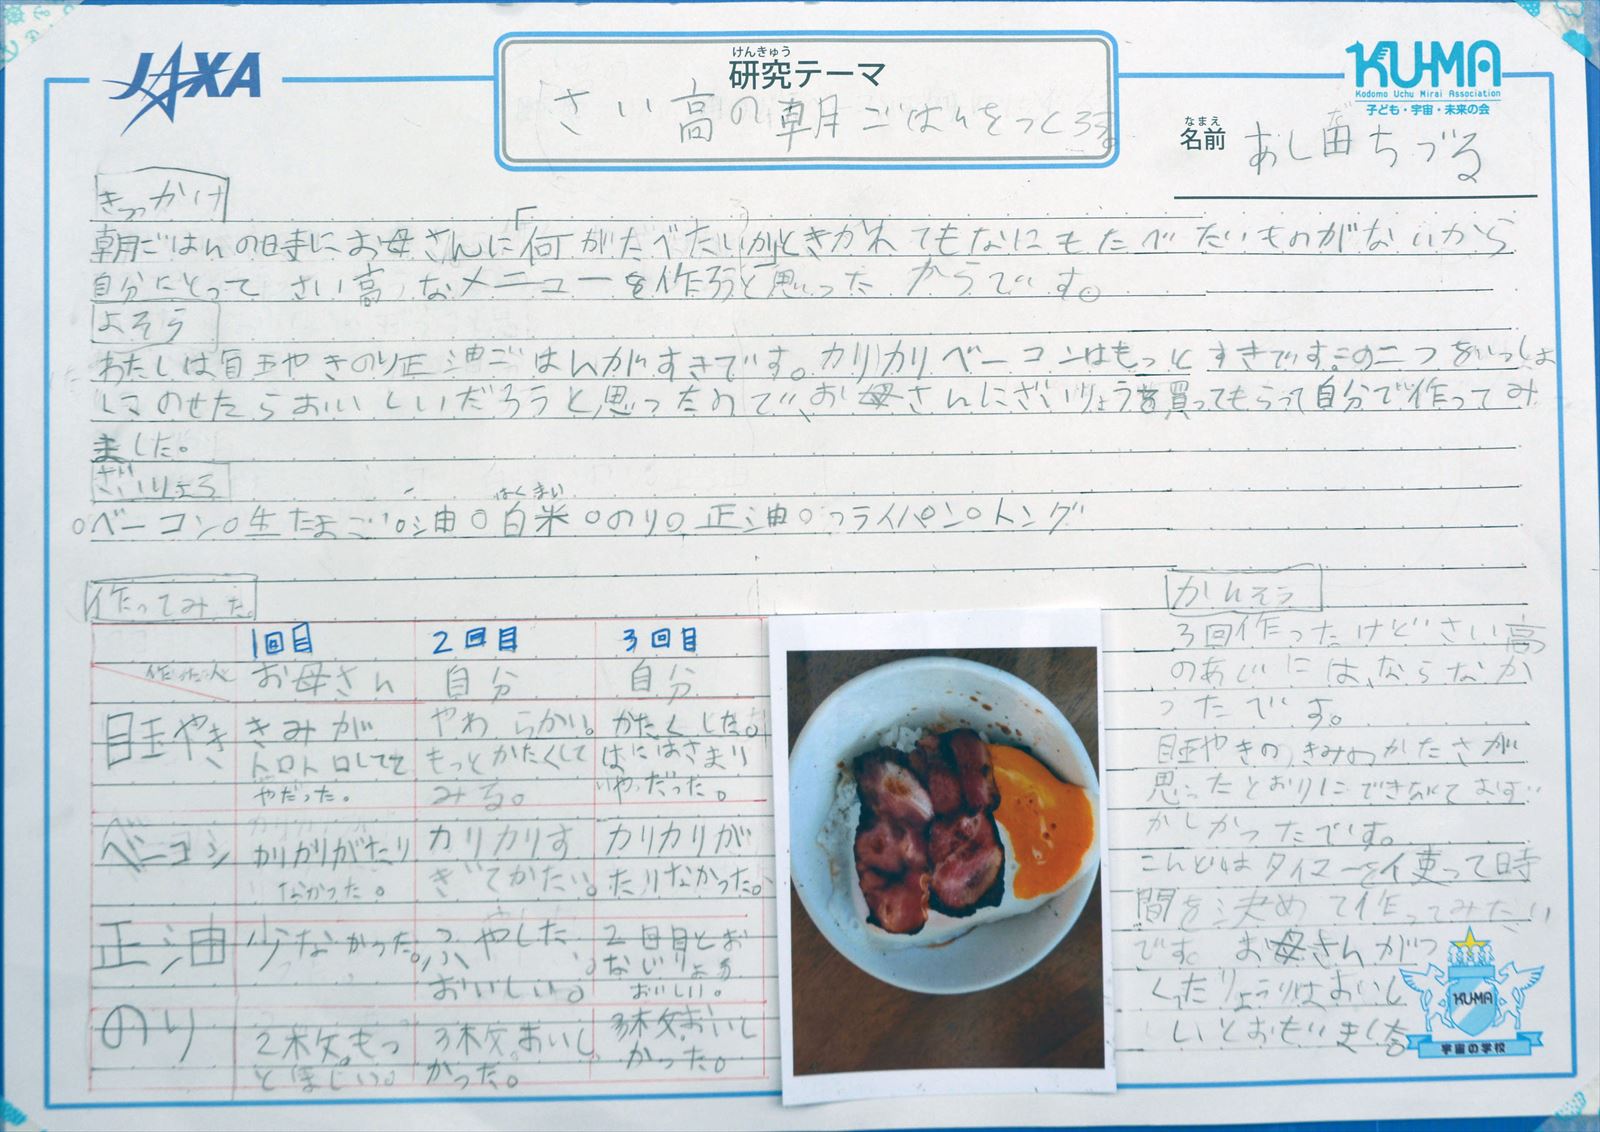 JAXA
けんきゅう
研究テーマ
さい高の朝ごはんをつくろう。
KU-MA
Kodomo Uchu Mirai Association
子ども・宇宙・未来の会
なまえ
名前
ちづる
きっかけ
朝ごはんの時にお母さんに「何がたべたいか」ときかれてもなにもたべたいものがないから
自分にとってさい高なメニューを作ろうと思ったからです。
よそう
わたしは目玉やきのり正油ごはんがすきです。カリカリベーコンはもっとすきです。この二つをいっしょ
にのせたらおいしいだろうと思ったので、お母さんにざいりょうを買ってもらって自分で作ってみ
ました。
ざいりょう
はくまい
○ベーコン○生たまご○油○白米○のり○正油○フライパン○トング
作ってみた
1回目 2回目 3回目
作った人 お母さん 自分 自分
目玉やき きみが やわらかい。 かたくした。
トロトロしてて もっとかたくして はにはさまり
やだった。 みる。 いやだった。
ベーコン カリカリがたり カリカリす カリカリが
なかった。 ぎてかたい。 たりなかった。
正油 少なかった。 ふやした。 2回目とお
なじりょう
おいしい。 おいしい。
のり 2枚。もっ 3枚。おいし 3枚。おいし
とほしい。 かった。 かった。
かんそう
3回作ったけどさい高
のあじには、ならなか
ったです。
目玉やきのきみのかたさが
思ったとおりにできなくてむず
かしかったです。
こんどはタイマーを使って時
間を決めて作ってみたい
です。お母さんがつ
くったりょうりはおいし
いとおもいました
KU-MA
宇宙の学校